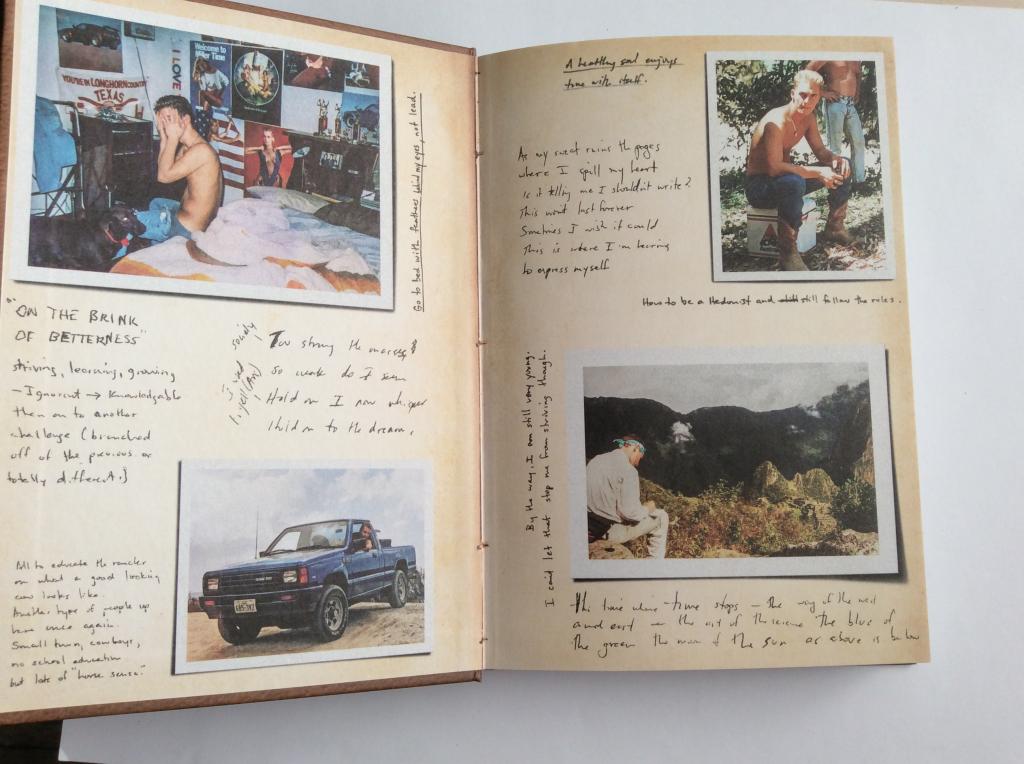 YOU'RE IN LONGHORN COUNTRY
TEXAS
I LOVE
Welcome to
Miller Time
Go to bed with feathers behind my eyes, not lead.
"ON THE BRINK
OF BETTERNESS"
striving, learning, growing
– Ignorant → Knowledgable
then on to another
challenge (branched
off of the previous or
totally different.)
solidly
I need
I yell
Too strong the
so weak do I seem
Hold on I now whisper
Hold on to the dream.
All to educate the rancher
on what a good looking
cow looks like.
Another type of people up
here once again.
Small town, cowboys,
no school education
but lots of "horse sense."
A healthy soul enjoys
time with itself.
As my sweat ruins the pages
where I spill my heart
Is it telling me I shouldn't write?
This wont last forever
Sometimes I wish it could
This is where I'm learning
to express myself
How to be a Hedonist and still follow the rules.
By the way, I am still very young.
I cant let that stop me from striving though.
time where time stops – the way of the west
and east – the art of the the blue of
the green the moon & the sun as above is below